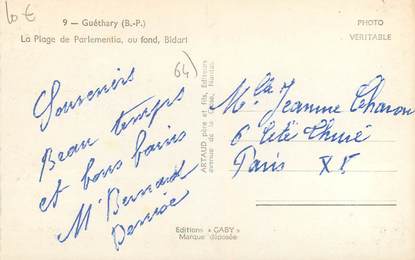 10 €
9 — Guéthary (B.-P.)
La Plage de Parlementia, au fond, Bidart
PHOTO
VÉRITABLE
64)
Souvenirs
Beau temps
et bons bains
Mr Bernard
ARTAUD père et fils, Editeurs
avenue de la Close, Nantes
Mlle Jeanne
6 Cité
Paris XV
Editions « GABY »
Marque déposée